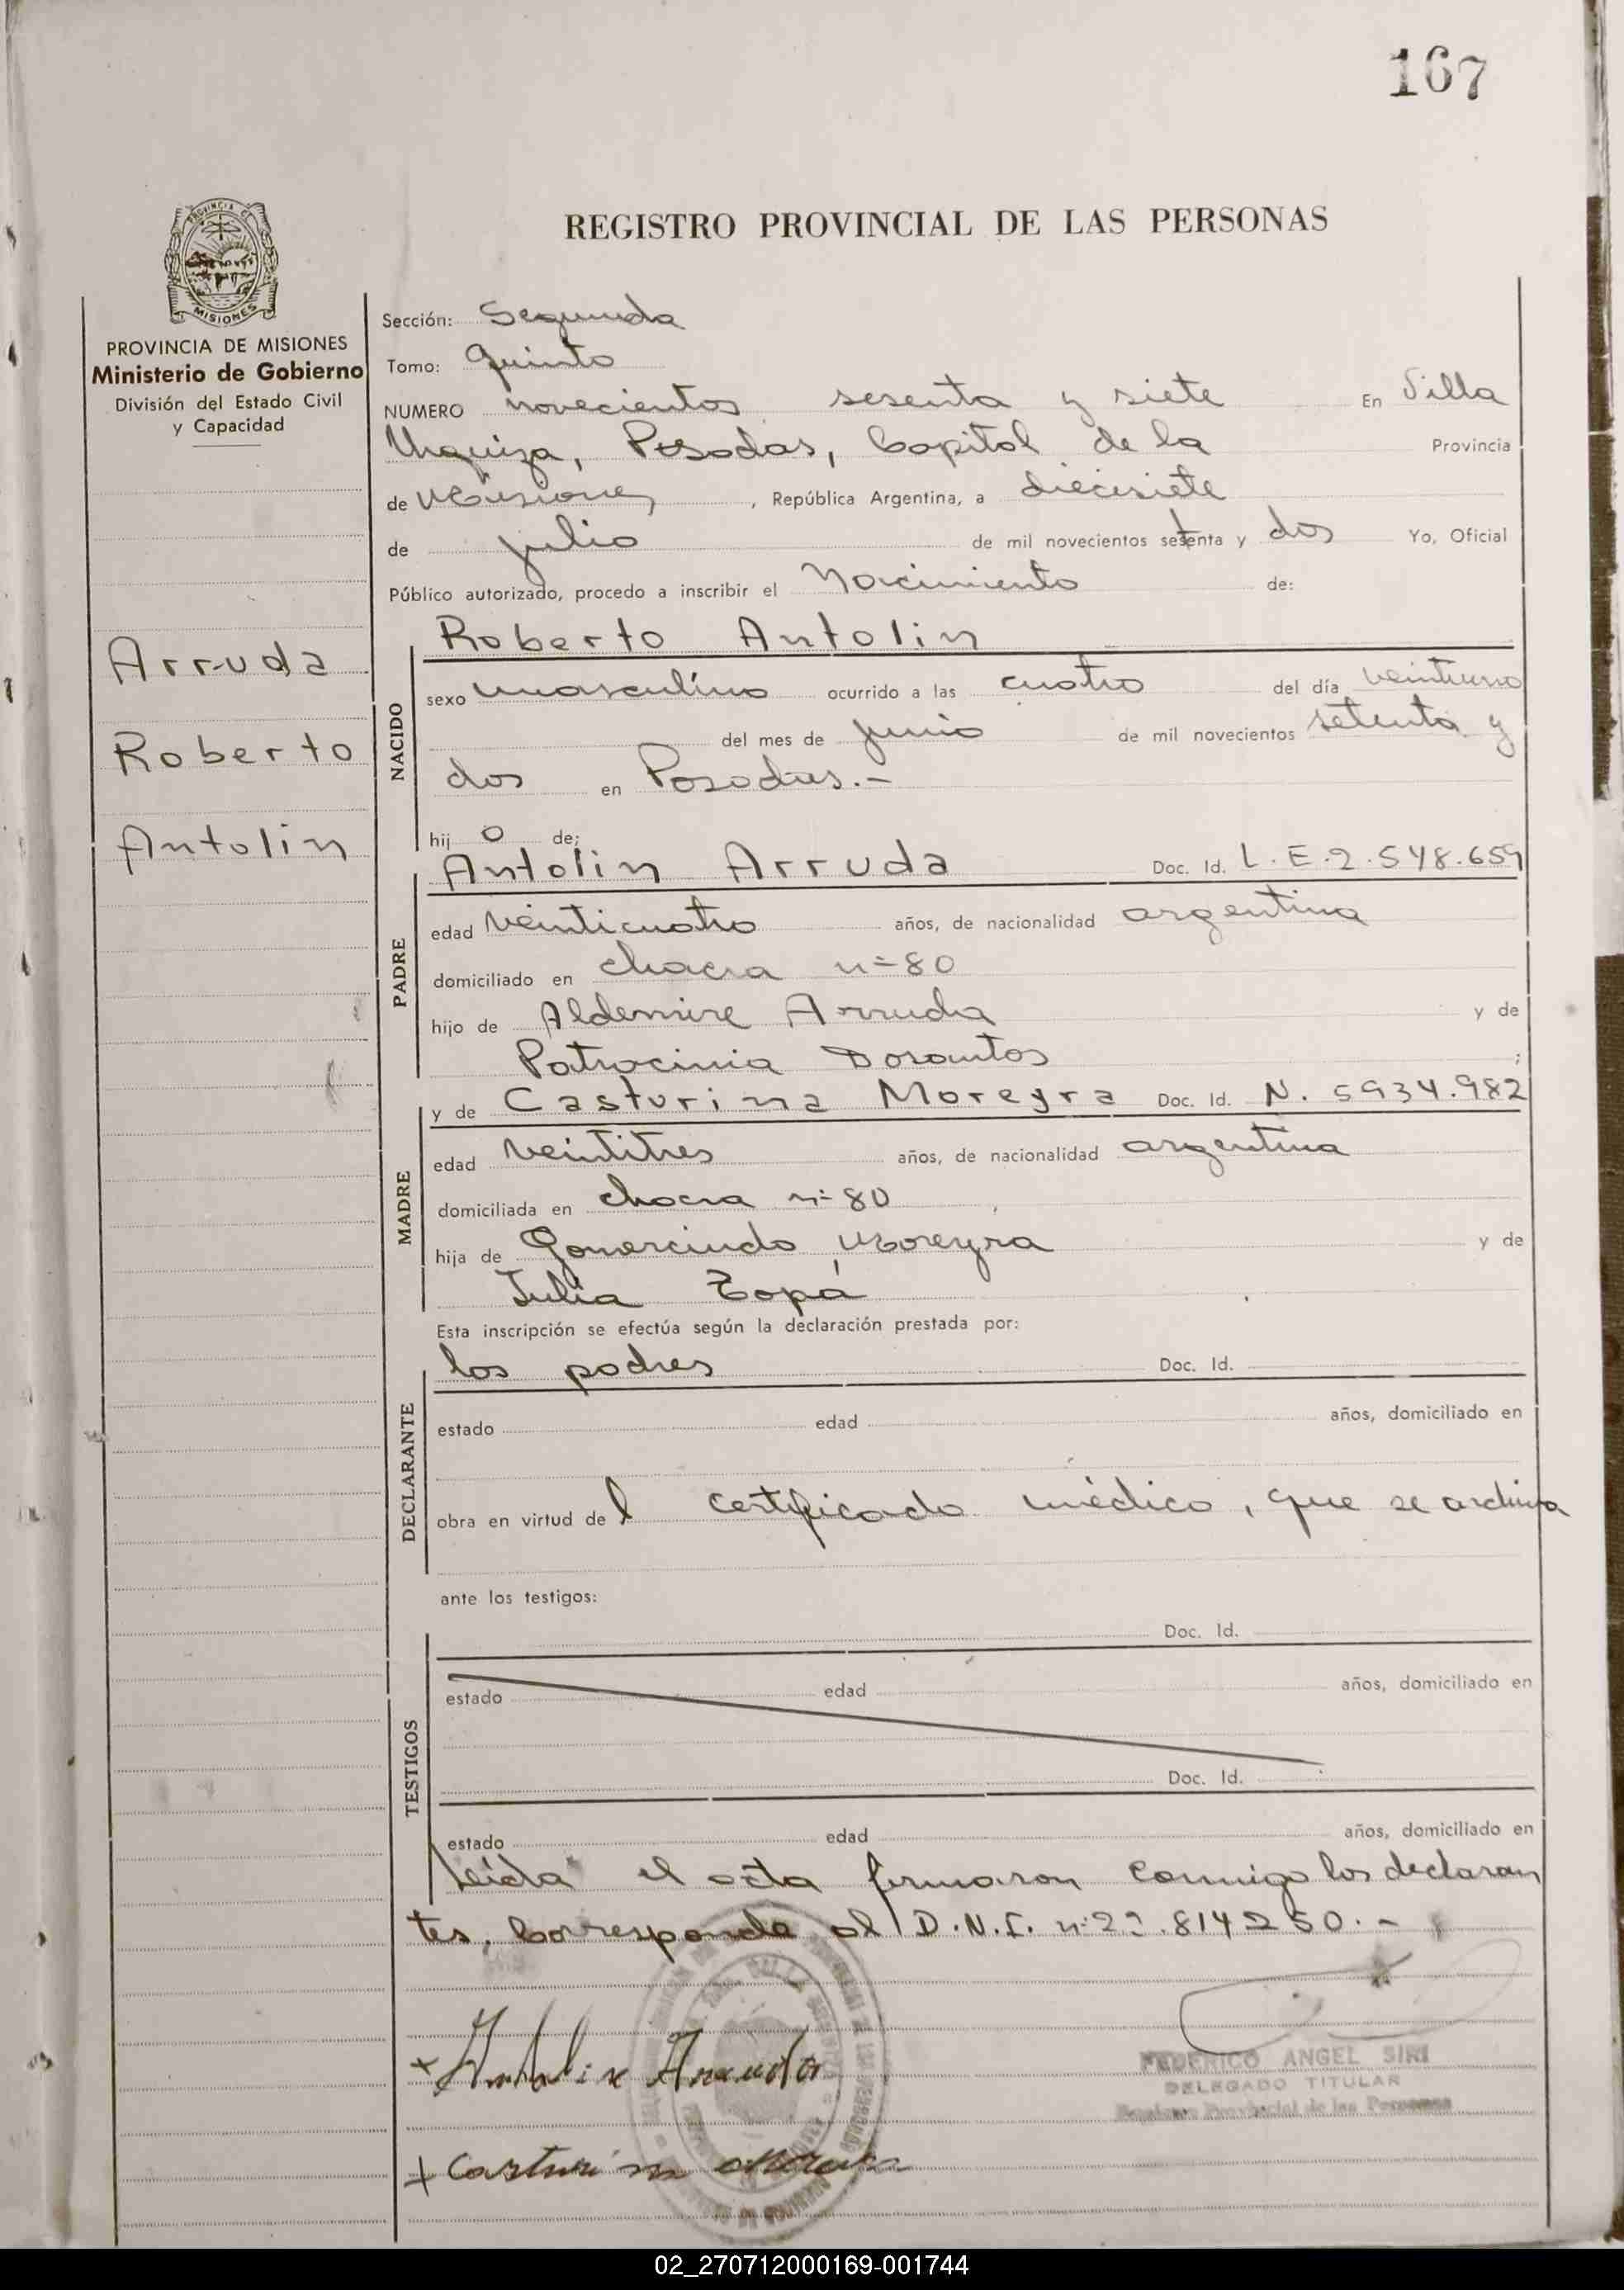 167
REGISTRO PROVINCIAL DE LAS PERSONAS
PROVINCIA DE
MISIONES
PROVINCIA DE MISIONES
Ministerio de Gobierno
División del Estado Civil
y Capacidad
Arruda
Roberto
Antolin
Sección: Segunda
Tomo: Quinto
NUMERO novecientos sesenta y siete En Villa
Urquiza, Posadas, Capital de la Provincia
de Misiones, República Argentina, a diecisiete
de julio de mil novecientos setenta y dos Yo, Oficial
Público autorizado, procedo a inscribir el Nacimiento de:
NACIDO
Roberto Antolin
sexo masculino ocurrido a las cuatro del día veintiuno
del mes de junio de mil novecientos setenta y
dos en Posadas.-
hijo de:
PADRE
Antolin Arruda Doc. Id. L.E.2.548.659
edad veinticuatro años, de nacionalidad argentina
domiciliado en chacra n=80
hijo de Aldemire Arruda y de
Patrocinia Dosantos ;
MADRE
y de Casturina Moreyra Doc. Id. N. 5934.982
edad veintitres años, de nacionalidad argentina
domiciliada en chacra n=80,
hija de Gomercindo Moreyra y de
Julia
Esta inscripción se efectúa según la declaración prestada por:
DECLARANTE
los padres Doc. Id.
estado edad años, domiciliado en
obra en virtud del certificado médico, que se archiva
ante los testigos:
TESTIGOS
Doc. Id.
estado edad años, domiciliado en
Doc. Id.
estado edad años, domiciliado en
Leída el acta firmaron conmigo los declaran
tes. Corresponde al D.N.I.
Arruda
FEDERICO ANGEL SIRI
DELEGADO TITULAR
Registro Provincial de las Personas
02_270712000169-001744